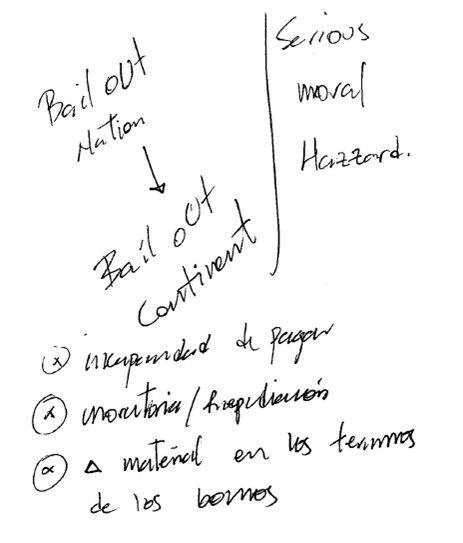 Bail out
Nation
Bail out
Continent
Serious
moral
Hazzard.
incapacidad de pagar
moratoria / repudiación
Δ material en los terminos
de los bonos